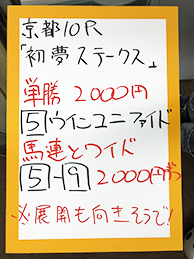 京都10R
「初夢ステークス」
単勝 2000円
5 ウインユニファイド
馬連とワイド
5-9 2000円ずつ
※展開も向きそうで!